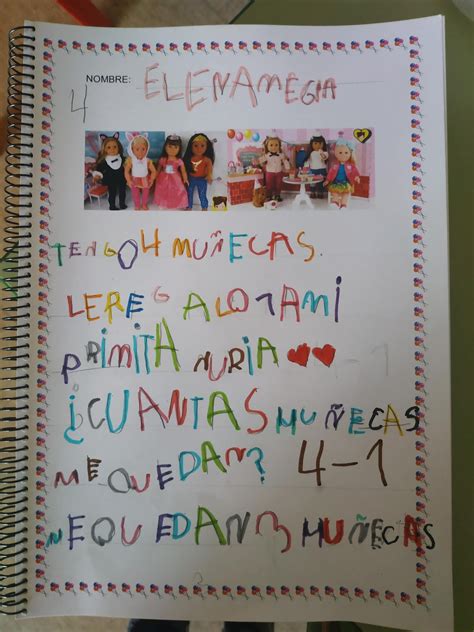 NOMBRE: ELENAMEGIA
4
TENGO4 MUÑECAS.
LEREGALO1AMI
PRIMITA NURIA ❤❤ -1
¿CUANTAS MUÑECAS
ME QUEDAN? 4-1
MEQUEDAN3 MUÑECAS